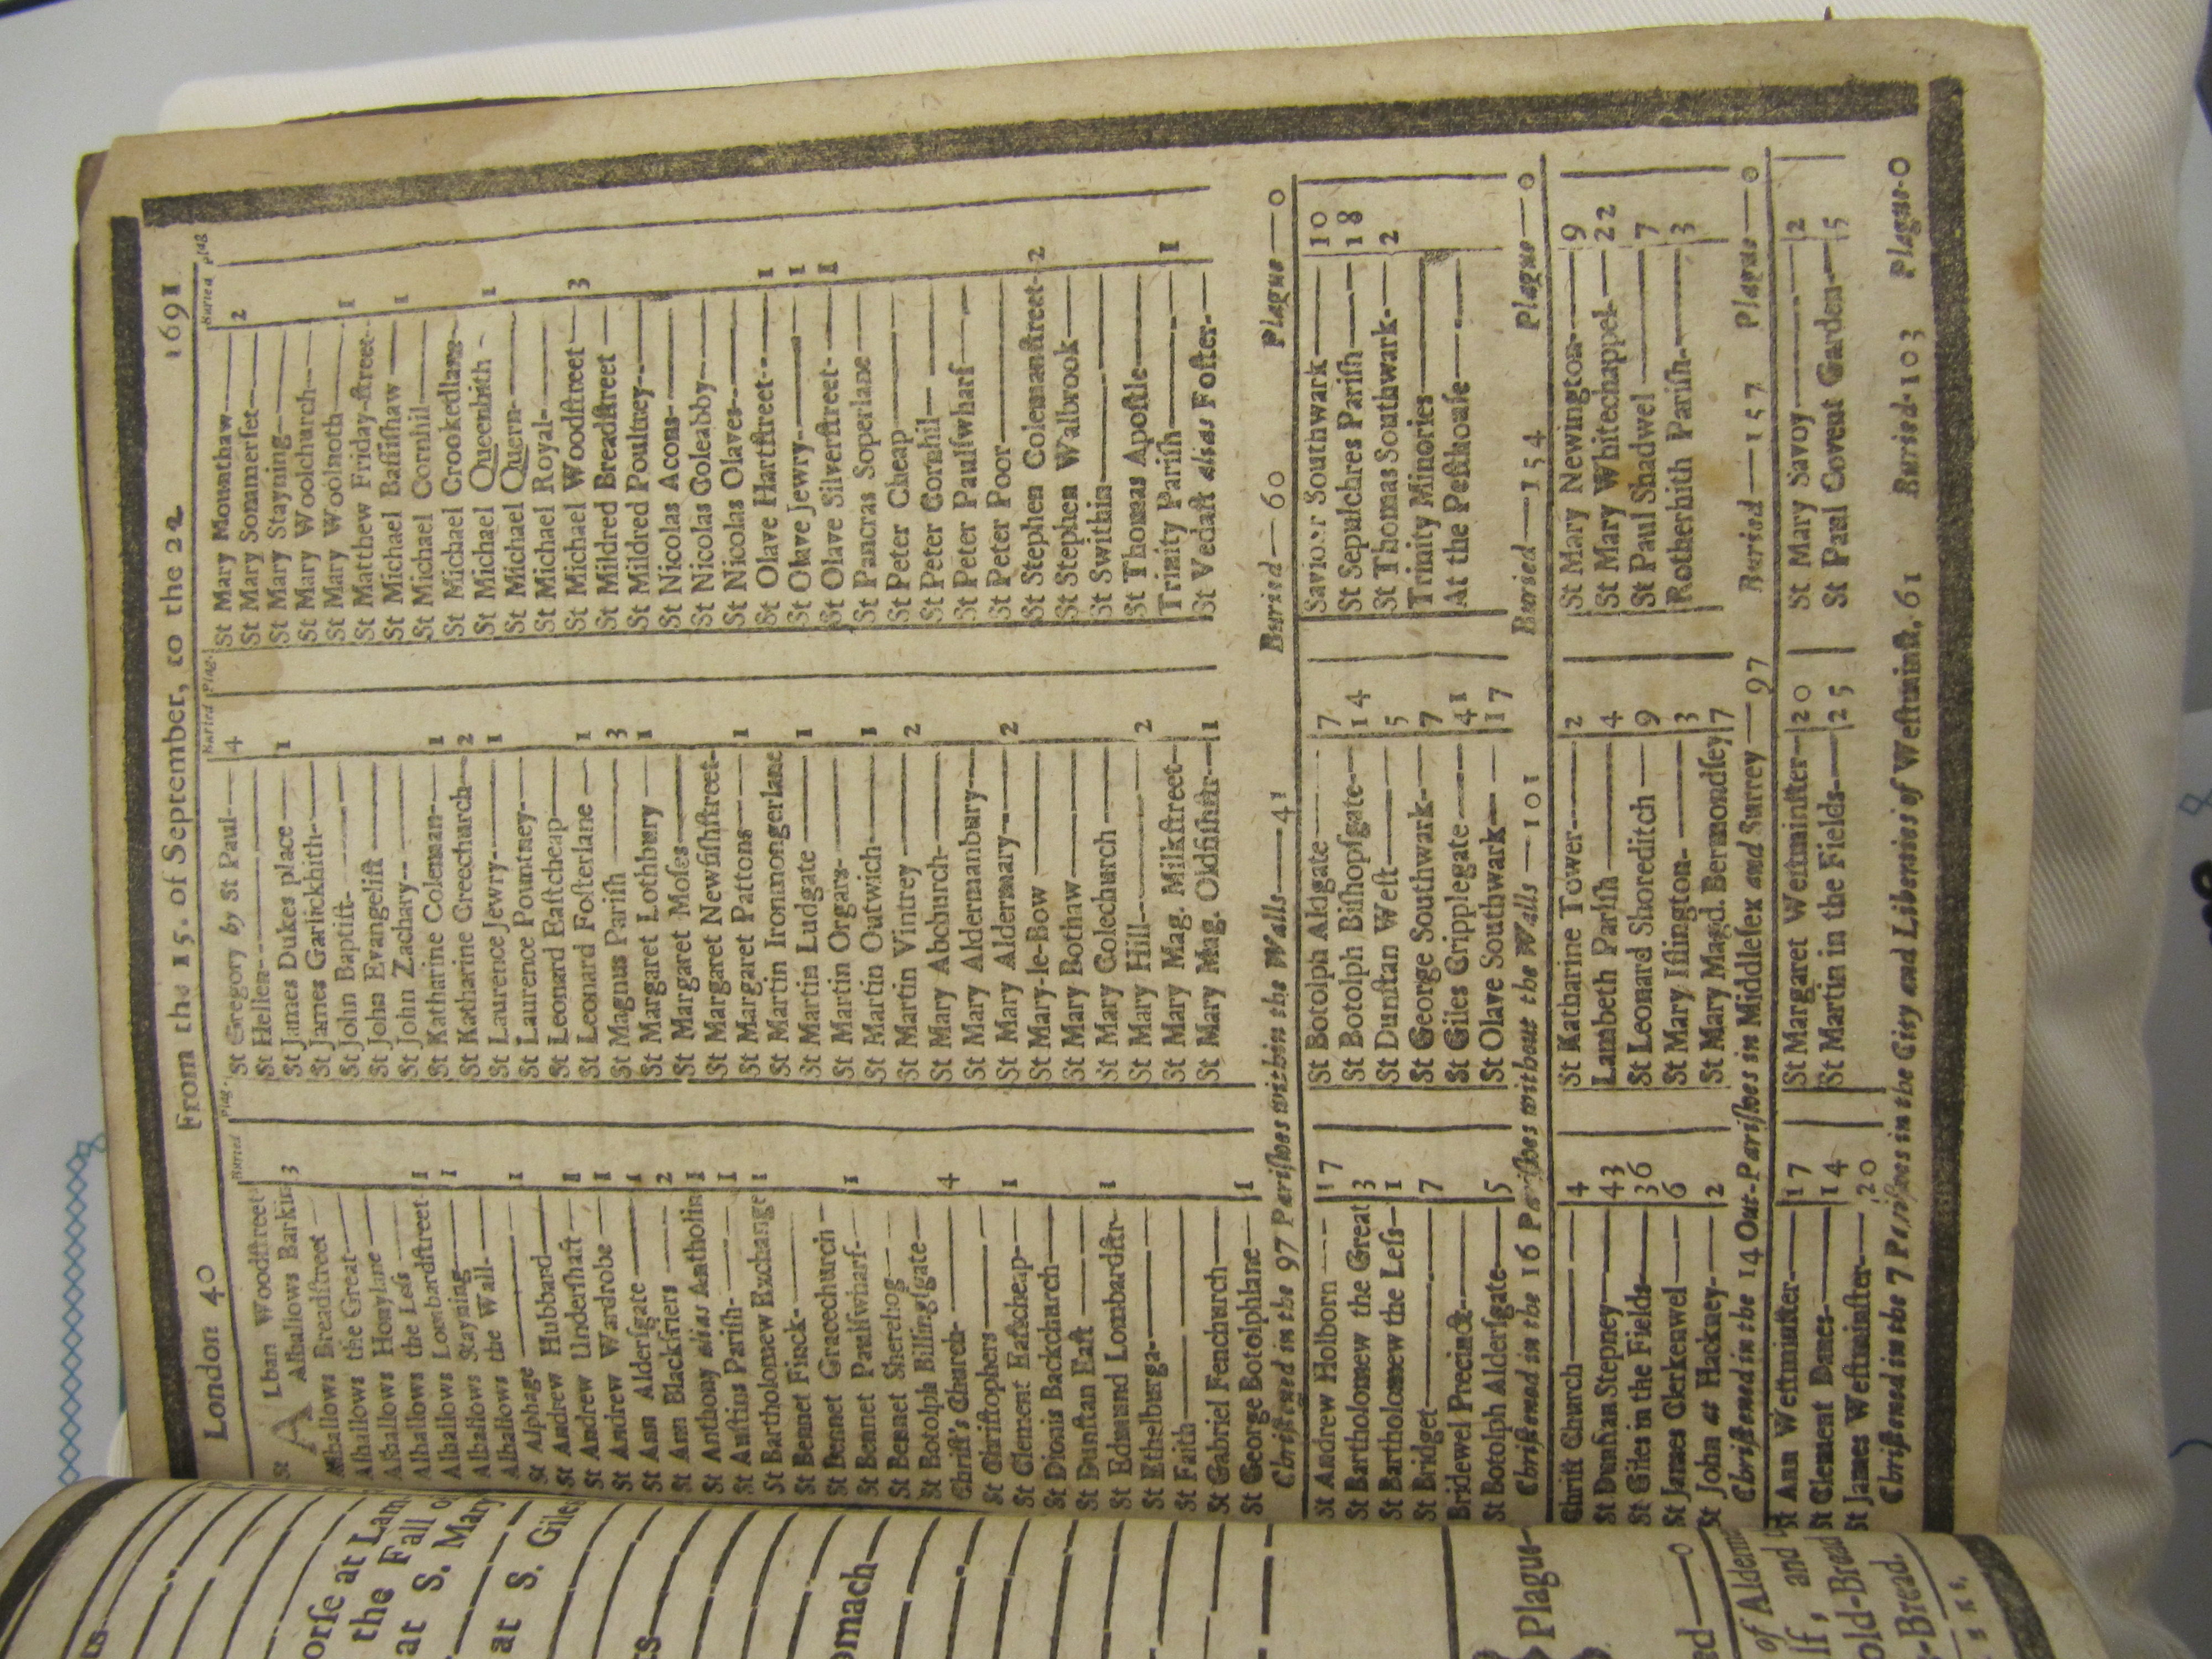 London 40 From the 15. of September, to the 22 1691
Buried Plag.
St Alban Woodstreet
Alhallows Barkin 3
Alhallows Breadstreet
Alhallows the Great
Alhallows Honylane
Alhallows the Less 1
Alhallows Lombardstreet 1
Alhallows Stayning
Alhallows the Wall 1
St Alphage
St Andrew Hubbard 1
St Andrew Undershaft 1
St Andrew Wardrobe 1
St Ann Aldersgate 2
St Ann Blackfriers 1
St Anthony alias Antholin 1
St Austins Parish 1
St Bartholomew Exchange
St Bennet Finck
St Bennet Gracechurch 1
St Bennet Paulswharf
St Bennet Sherehog
St Botolph Billingsgate 4
Christ's Church
St Christophers 1
St Clement Eastcheap
St Dionis Backchurch
St Dunstan East 1
St Edmund Lombardstr
St Ethelburga
St Faith
St Gabriel Fenchurch 1
St George Botolphlane
Buried Plag.
St Gregory by St Paul 4
St Hellen
St James Dukes place 1
St James Garlickhith
St John Baptist
St John Evangelist
St John Zachary
St Katharine Coleman 1
St Katharine Creechurch 2
St Laurence Jewry 1
St Laurence Pountney
St Leonard Eastcheap
St Leonard Fosterlane 1
St Magnus Parish 3
St Margaret Lothbury 1
St Margaret Moses
St Margaret Newfishstreet
St Margaret Pattons 1
St Martin Ironmongerlane
St Martin Ludgate 1
St Martin Orgars
St Martin Outwich 1
St Martin Vintrey 2
St Mary Abchurch
St Mary Aldermanbury
St Mary Aldermary 2
St Mary-le-Bow
St Mary Bothaw
St Mary Colechurch
St Mary Hill 2
St Mary Mag. Milkstreet
St Mary Mag. Oldfishstr 1
Buried Plag
St Mary Mounthaw 2
St Mary Sommerset
St Mary Stayning
St Mary Woolchurch
St Mary Woolnoth 1
St Matthew Friday-street
St Michael Bassishaw 1
St Michael Cornhil
St Michael Crookedlane
St Michael Queenhith 1
St Michael Quern
St Michael Royal
St Michael Woodstreet 3
St Mildred Breadstreet
St Mildred Poultrey
St Nicolas Acons
St Nicolas Coleabby
St Nicolas Olaves
St Olave Hartstreet 1
St Olave Jewry 1
St Olave Silverstreet 1
St Pancras Soperlane
St Peter Cheap
St Peter Cornhil
St Peter Paulswharf
St Peter Poor
St Stephen Colemanstreet 2
St Stephen Walbrook
St Swithin
St Thomas Apostle
Trinity Parish 1
St Vedast alias Foster
Christened in the 97 Parishes within the Walls 41 Buried 60 Plague 0
St Andrew Holborn 17
St Bartholomew the Great 3
St Bartholomew the Less 1
St Bridget 7
Bridewel Precinct
St Botolph Aldersgate 5
St Botolph Aldgate 7
St Botolph Bishopsgate 14
St Dunstan West 5
St George Southwark 7
St Giles Cripplegate 41
St Olave Southwark 17
Saviour Southwark 10
St Sepulchres Parish 18
St Thomas Southwark 2
Trinity Minories
At the Pesthouse
Christened in the 16 Parishes without the Walls 101 Buried 154 Plague 0
Christ Church 4
St Dunstan Stepney 43
St Giles in the Fields 36
St James Clerkenwel 6
St John at Hackney 2
St Katharine Tower 2
Lambeth Parish 4
St Leonard Shoreditch 9
St Mary Islington 3
St Mary Magd. Bermondsey 7
St Mary Newington 9
St Mary Whitechappel 22
St Paul Shadwel 7
Rotherhith Parish 3
Christened in the 14 Out-Parishes in Middlesex and Surrey 97 Buried 157 Plague 0
St Ann Westminster 17
St Clement Danes 14
St James Westminster 20
St Margaret Westminster 20
St Martin in the Fields 25
St Mary Savoy 2
St Paul Covent Garden 5
Christened in the 7 Parishes in the City and Liberties of Westminst. 61 Buried 103 Plague 0
orse at Lam
the Fall o
at S. Mary
at S. Giles
omach
Plague
ed 0
of Alderm
lf, and
old-Bread
-Bread.